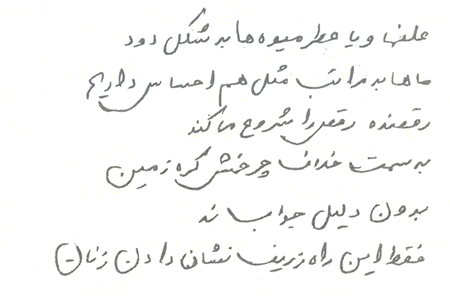 علفها و یا عطر میوه ها به شکل دود
ماها به مراتب مثل هم احساس داریم
رقصنده رقص را شروع ما کند
به سمت خلاف چرخش کره زمین
بدون دلیل جواب ند
فقط این راه زریف نشان دادن زنان